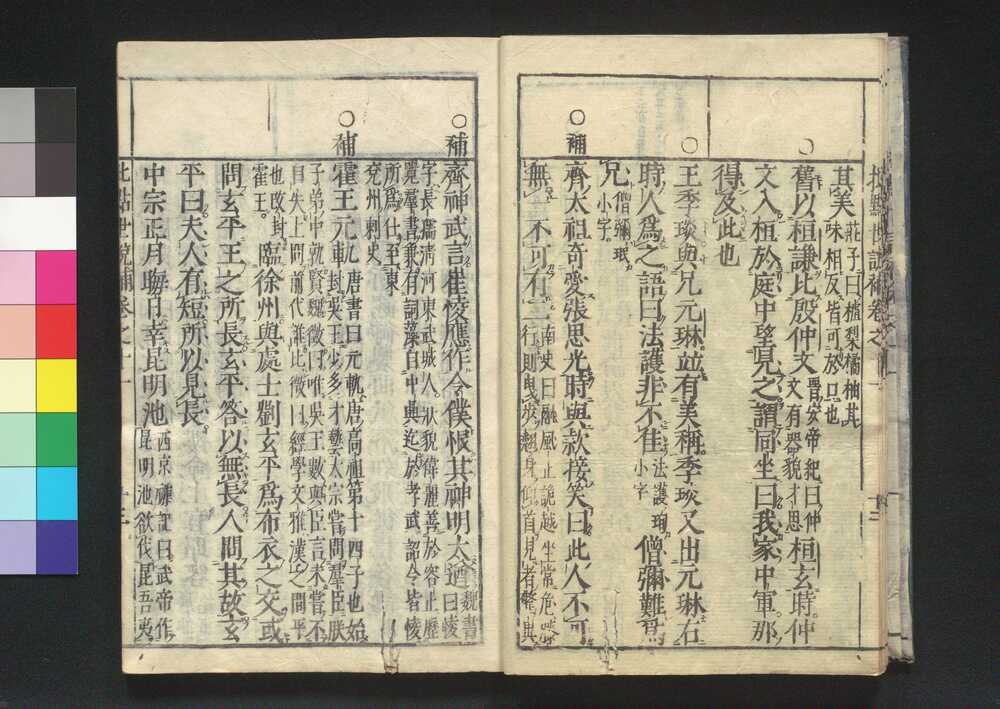 其美莊子曰樝梨橘柚其
味相反皆可於口也
○
舊以桓謙比殷仲文晉安帝紀曰仲
文有器貌才思桓玄時仲
文入桓於庭中望見之謂同坐曰我家中軍那
得及此也
○
王季琰與兄元琳並有美稱季琰又出元琳右
時人為之語曰法護非不佳法護珣
小字僧彌難為
兄僧彌珉
小字
○補
齊太祖奇愛張思光時與款接笑曰此人不可
無一不可有二南史曰融風止詭越坐常危膝
行則曳步翹身仰首見者驚異
○補
齊神武言崔㥄應作令僕恨其神明太遒魏書
曰㥄
字長孺清河東武城人狀貌偉麗善於容止歷
覽羣書兼有詞藻自中興迄於孝武詔令皆㥄
所為仕至東
兗州刺史
○補
霍王元軌唐書曰元軌唐高祖第十四子也始
封吳王少多才藝太宗嘗問羣臣朕
子弟中孰賢魏徵曰唯吳王數與臣言未嘗不
自失上問前代誰比徵曰經學文雅漢之間平
也改封
霍王臨徐州與處士劉玄平為布衣之交或
問玄平王之所長玄平答以無長人問其故玄
平曰夫人有短所以見長
中宗正月晦日幸昆明池西京雜記曰武帝作
昆明池欲伐昆吾夷
批點世說補卷之十一